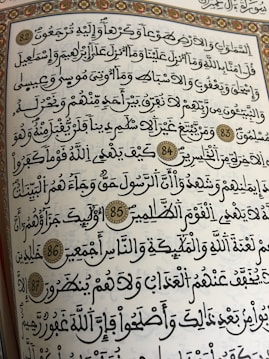 السَّمَٰوَٰتِ وَالْأَرْضِ طَوْعًا وَكَرْهًا وَإِلَيْهِ تُرْجَعُونَ
قُلْ ءَامَنَّا بِاللَّهِ وَمَا أُنزِلَ عَلَيْنَا وَمَا أُنزِلَ عَلَىٰ إِبْرَٰهِيمَ وَإِسْمَٰعِيلَ
وَإِسْحَٰقَ وَيَعْقُوبَ وَالْأَسْبَاطِ وَمَا أُوتِيَ مُوسَىٰ وَعِيسَىٰ
وَالنَّبِيئُونَ مِن رَّبِّهِمْ لَا نُفَرِّقُ بَيْنَ أَحَدٍ مِّنْهُمْ وَنَحْنُ لَهُ
مُسْلِمُونَ 83 وَمَنْ يَّبْتَغِ غَيْرَ الْإِسْلَٰمِ دِينًا فَلَنْ يُّقْبَلَ مِنْهُ وَهُوَ
فِي الْأَخِرَةِ مِنَ الْخَٰسِرِينَ 84 كَيْفَ يَهْدِي اللَّهُ قَوْمًا كَفَرُوا
إِيمَٰنِهِمْ وَشَهِدُوا أَنَّ الرَّسُولَ حَقٌّ وَجَاءَهُمُ الْبَيِّنَٰتُ
لَا يَهْدِي الْقَوْمَ الظَّٰلِمِينَ 85 أُوْلَٰئِكَ جَزَاؤُهُمْ أَنَّ
لَعْنَةَ اللَّهِ وَالْمَلَٰئِكَةِ وَالنَّاسِ أَجْمَعِينَ 86 خَٰلِدِينَ
يُخَفَّفُ عَنْهُمُ الْعَذَابُ وَلَا هُمْ يُنظَرُونَ 87 إِلَّا
مِنْ بَعْدِ ذَٰلِكَ وَأَصْلَحُوا فَإِنَّ اللَّهَ غَفُورٌ رَّحِيمٌ